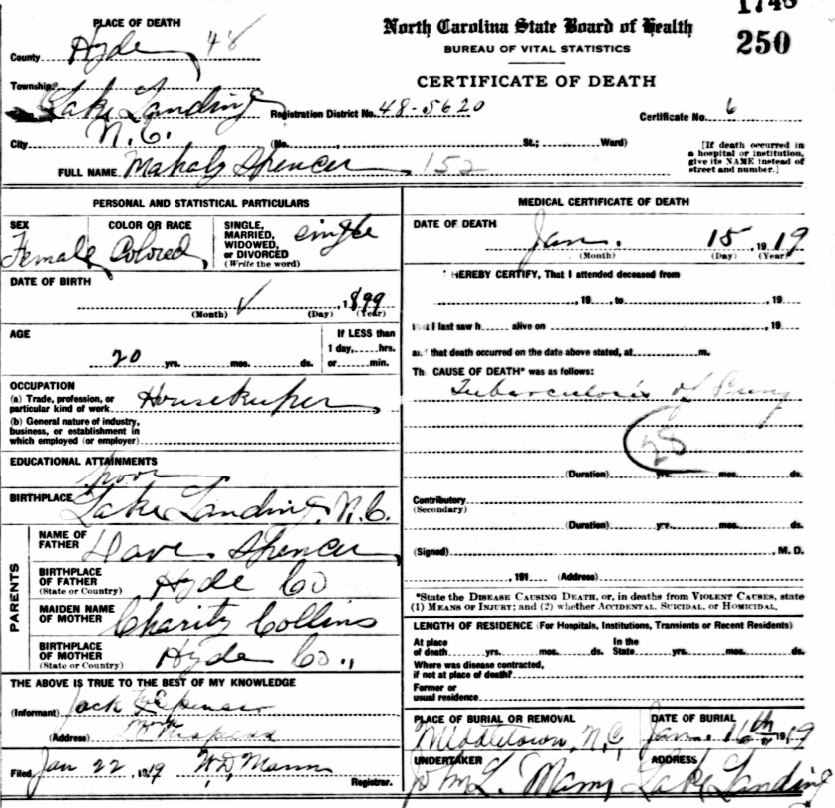 1746
250
North Carolina State Board of Health
BUREAU OF VITAL STATISTICS
CERTIFICATE OF DEATH
PLACE OF DEATH
County Hyde 48
Township Lake Landing Registration District No. 48-5620 Certificate No. 6
City N.C. (No. , St.; Ward)
[If death occurred in a hospital or institution, give its NAME instead of street and number.]
FULL NAME Mahaly Spencer 152
PERSONAL AND STATISTICAL PARTICULARS
SEX Female
COLOR OR RACE Colored
SINGLE, MARRIED, WIDOWED, or DIVORCED (Write the word) single
DATE OF BIRTH
(Month) (Day) , 1899 (Year)
AGE
20 yrs. mos. ds.
If LESS than 1 day, hrs. or min.
OCCUPATION
(a) Trade, profession, or particular kind of work Housekeeper
(b) General nature of industry, business, or establishment in which employed (or employer)
EDUCATIONAL ATTAINMENTS
poor
BIRTHPLACE Lake Landing, N.C.
PARENTS
NAME OF FATHER Dave Spencer
BIRTHPLACE OF FATHER (State or Country) Hyde Co
MAIDEN NAME OF MOTHER Charity Collins
BIRTHPLACE OF MOTHER (State or Country) Hyde Co.,
THE ABOVE IS TRUE TO THE BEST OF MY KNOWLEDGE
(Informant) Jack Spencer
(Address)
Filed Jan 22, 1919 W.D. Mann Registrar.
MEDICAL CERTIFICATE OF DEATH
DATE OF DEATH
Jan. (Month) 15 (Day) , 1919 (Year)
I HEREBY CERTIFY, That I attended deceased from
, 19 , to , 19
that I last saw h alive on , 19
and that death occurred on the date above stated, at m.
The CAUSE OF DEATH* was as follows:
Tuberculosis of Lung
28
(Duration) yrs. mos. ds.
Contributory (Secondary)
(Duration) yrs. mos. ds.
(Signed) , M. D.
, 191 (Address)
*State the DISEASE CAUSING DEATH, or, in deaths from VIOLENT CAUSES, state
(1) MEANS OF INJURY; and (2) whether ACCIDENTAL, SUICIDAL, or HOMICIDAL.
LENGTH OF RESIDENCE (For Hospitals, Institutions, Transients or Recent Residents)
At place of death yrs. mos. ds. In the State yrs. mos. ds.
Where was disease contracted, if not at place of death?
Former or usual residence
PLACE OF BURIAL OR REMOVAL Middletown, N.C.
DATE OF BURIAL Jan. 16th 1919
UNDERTAKER John L. Mann
ADDRESS Lake Landing